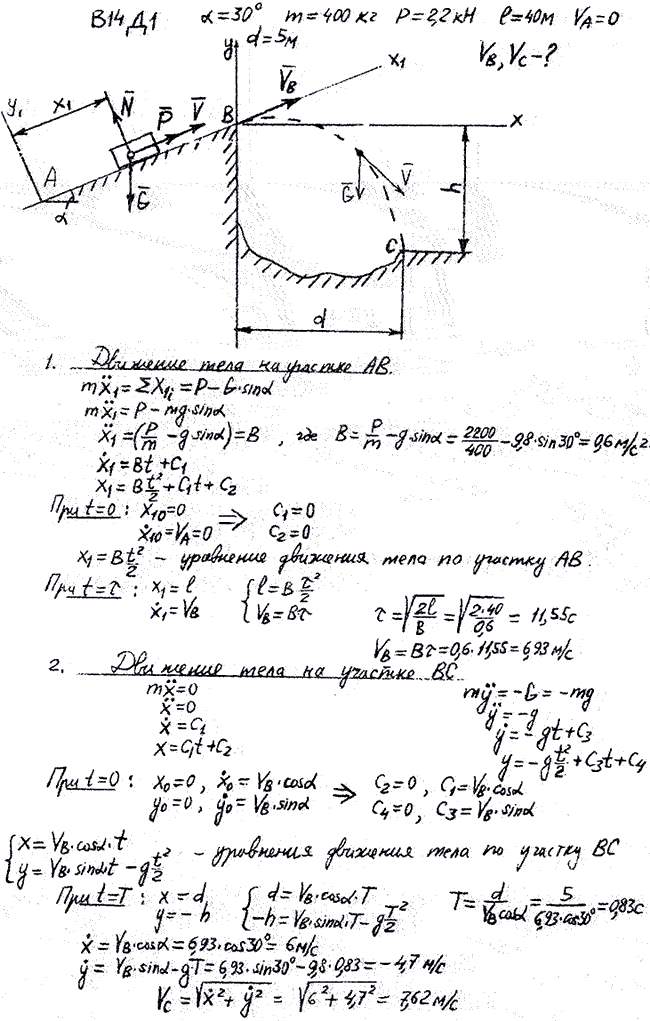 В14,Д1 α=30° m=400 кг P=2,2 кН l=40м V_A=0
d=5м V_B, V_C-?
y x₁
y₁ x₁ N̄ P̄ V̄ B V̄_B x
A Ḡ α Ḡ V̄ h
C
d
1. Движение тела на участке АВ.
mẍ₁=ΣX₁ᵢ=P-G·sinα
mẍ₁=P-mg·sinα
ẍ₁=(P/m-g sinα)=B , где B=P/m-g·sinα=2200/400-9,8·sin30°=0,6 м/с2.
ẋ₁=Bt+C₁
x₁=B t²/2+C₁t+C₂
При t=0: x₁₀=0 ⇒ C₁=0
ẋ₁₀=V_A=0 C₂=0
x₁=B t²/2 - уравнение движения тела по участку АВ.
При t=τ: x₁=l { l=B τ²/2
ẋ₁=V_B V_B=Bτ τ=√(2l/B)=√(2·40/0,6)=11,55с
V_B=Bτ=0,6·11,55=6,93 м/с
2. Движение тела на участке ВС
mẍ=0 mÿ=-G=-mg
ẍ=0 ÿ=-g
ẋ=C₁ ẏ=-gt+C₃
x=C₁t+C₂ y=-g t²/2+C₃t+C₄
При t=0: x₀=0, ẋ₀=V_B·cosα ⇒ C₂=0, C₁=V_B·cosα
y₀=0, ẏ₀=V_B·sinα C₄=0, C₃=V_B·sinα
{ x=V_B·cosα·t
y=V_B·sinα·t-g t²/2 - уравнения движения тела по участку ВС
При t=T: x=d, { d=V_B·cosα·T T=d/(V_B cosα)=5/(6,93·cos30°)=0,83с
y=-h -h=V_B·sinα·T-g T²/2
ẋ=V_B·cosα=6,93·cos30°=6 м/с
ẏ=V_B·sinα-gT=6,93·sin30°-9,8·0,83=-4,7 м/с
V_C=√(ẋ²+ẏ²)=√(6²+4,7²)=7,62 м/с